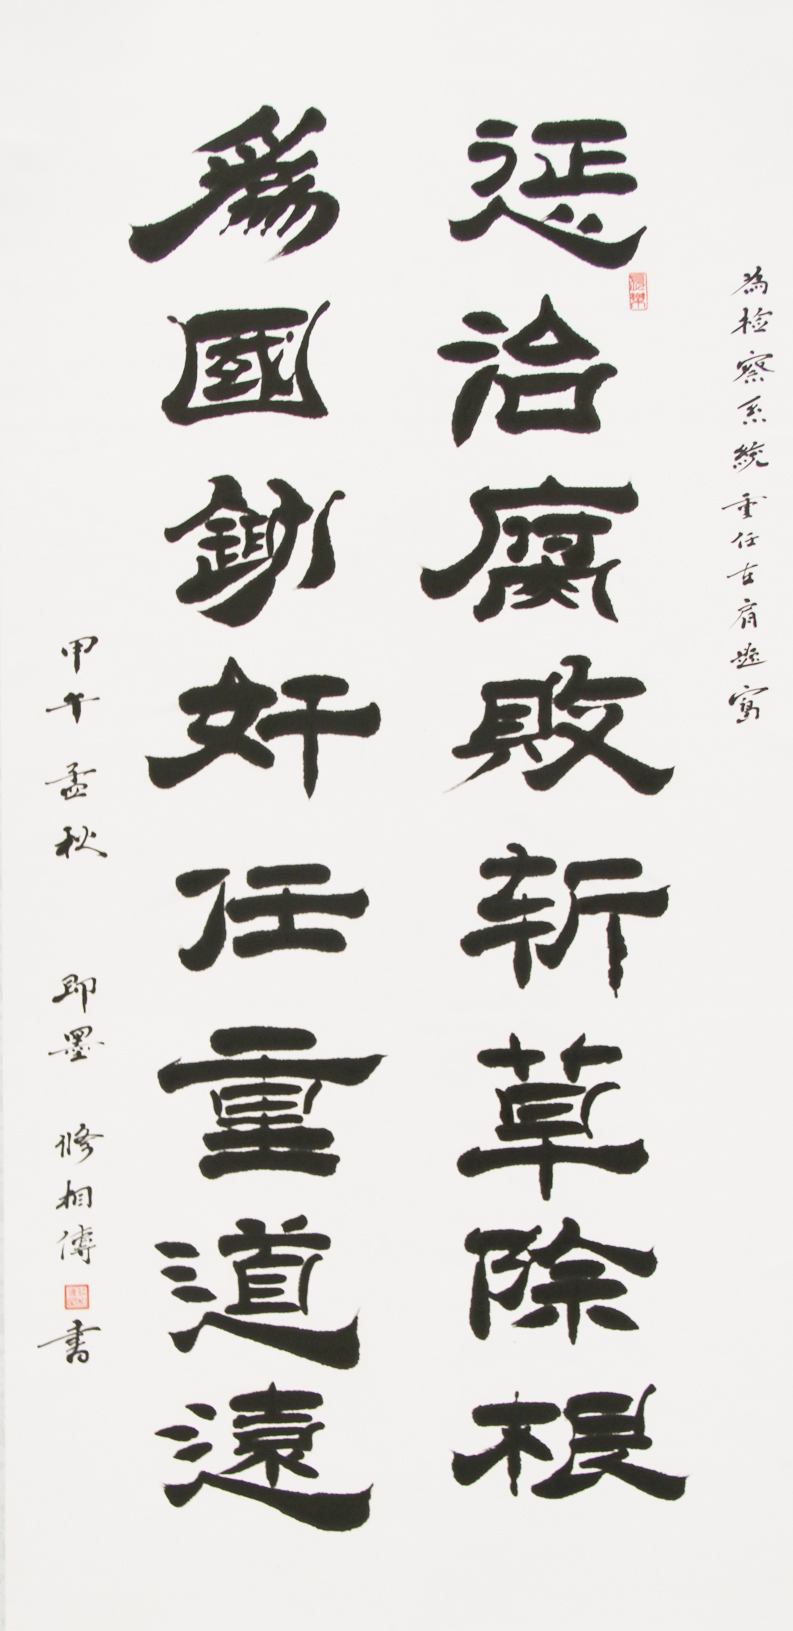 為检察系統重任在肩題寫
惩治腐敗斩草除根
為國鋤奸任重道遠
甲午孟秋 即墨 修相傳 书